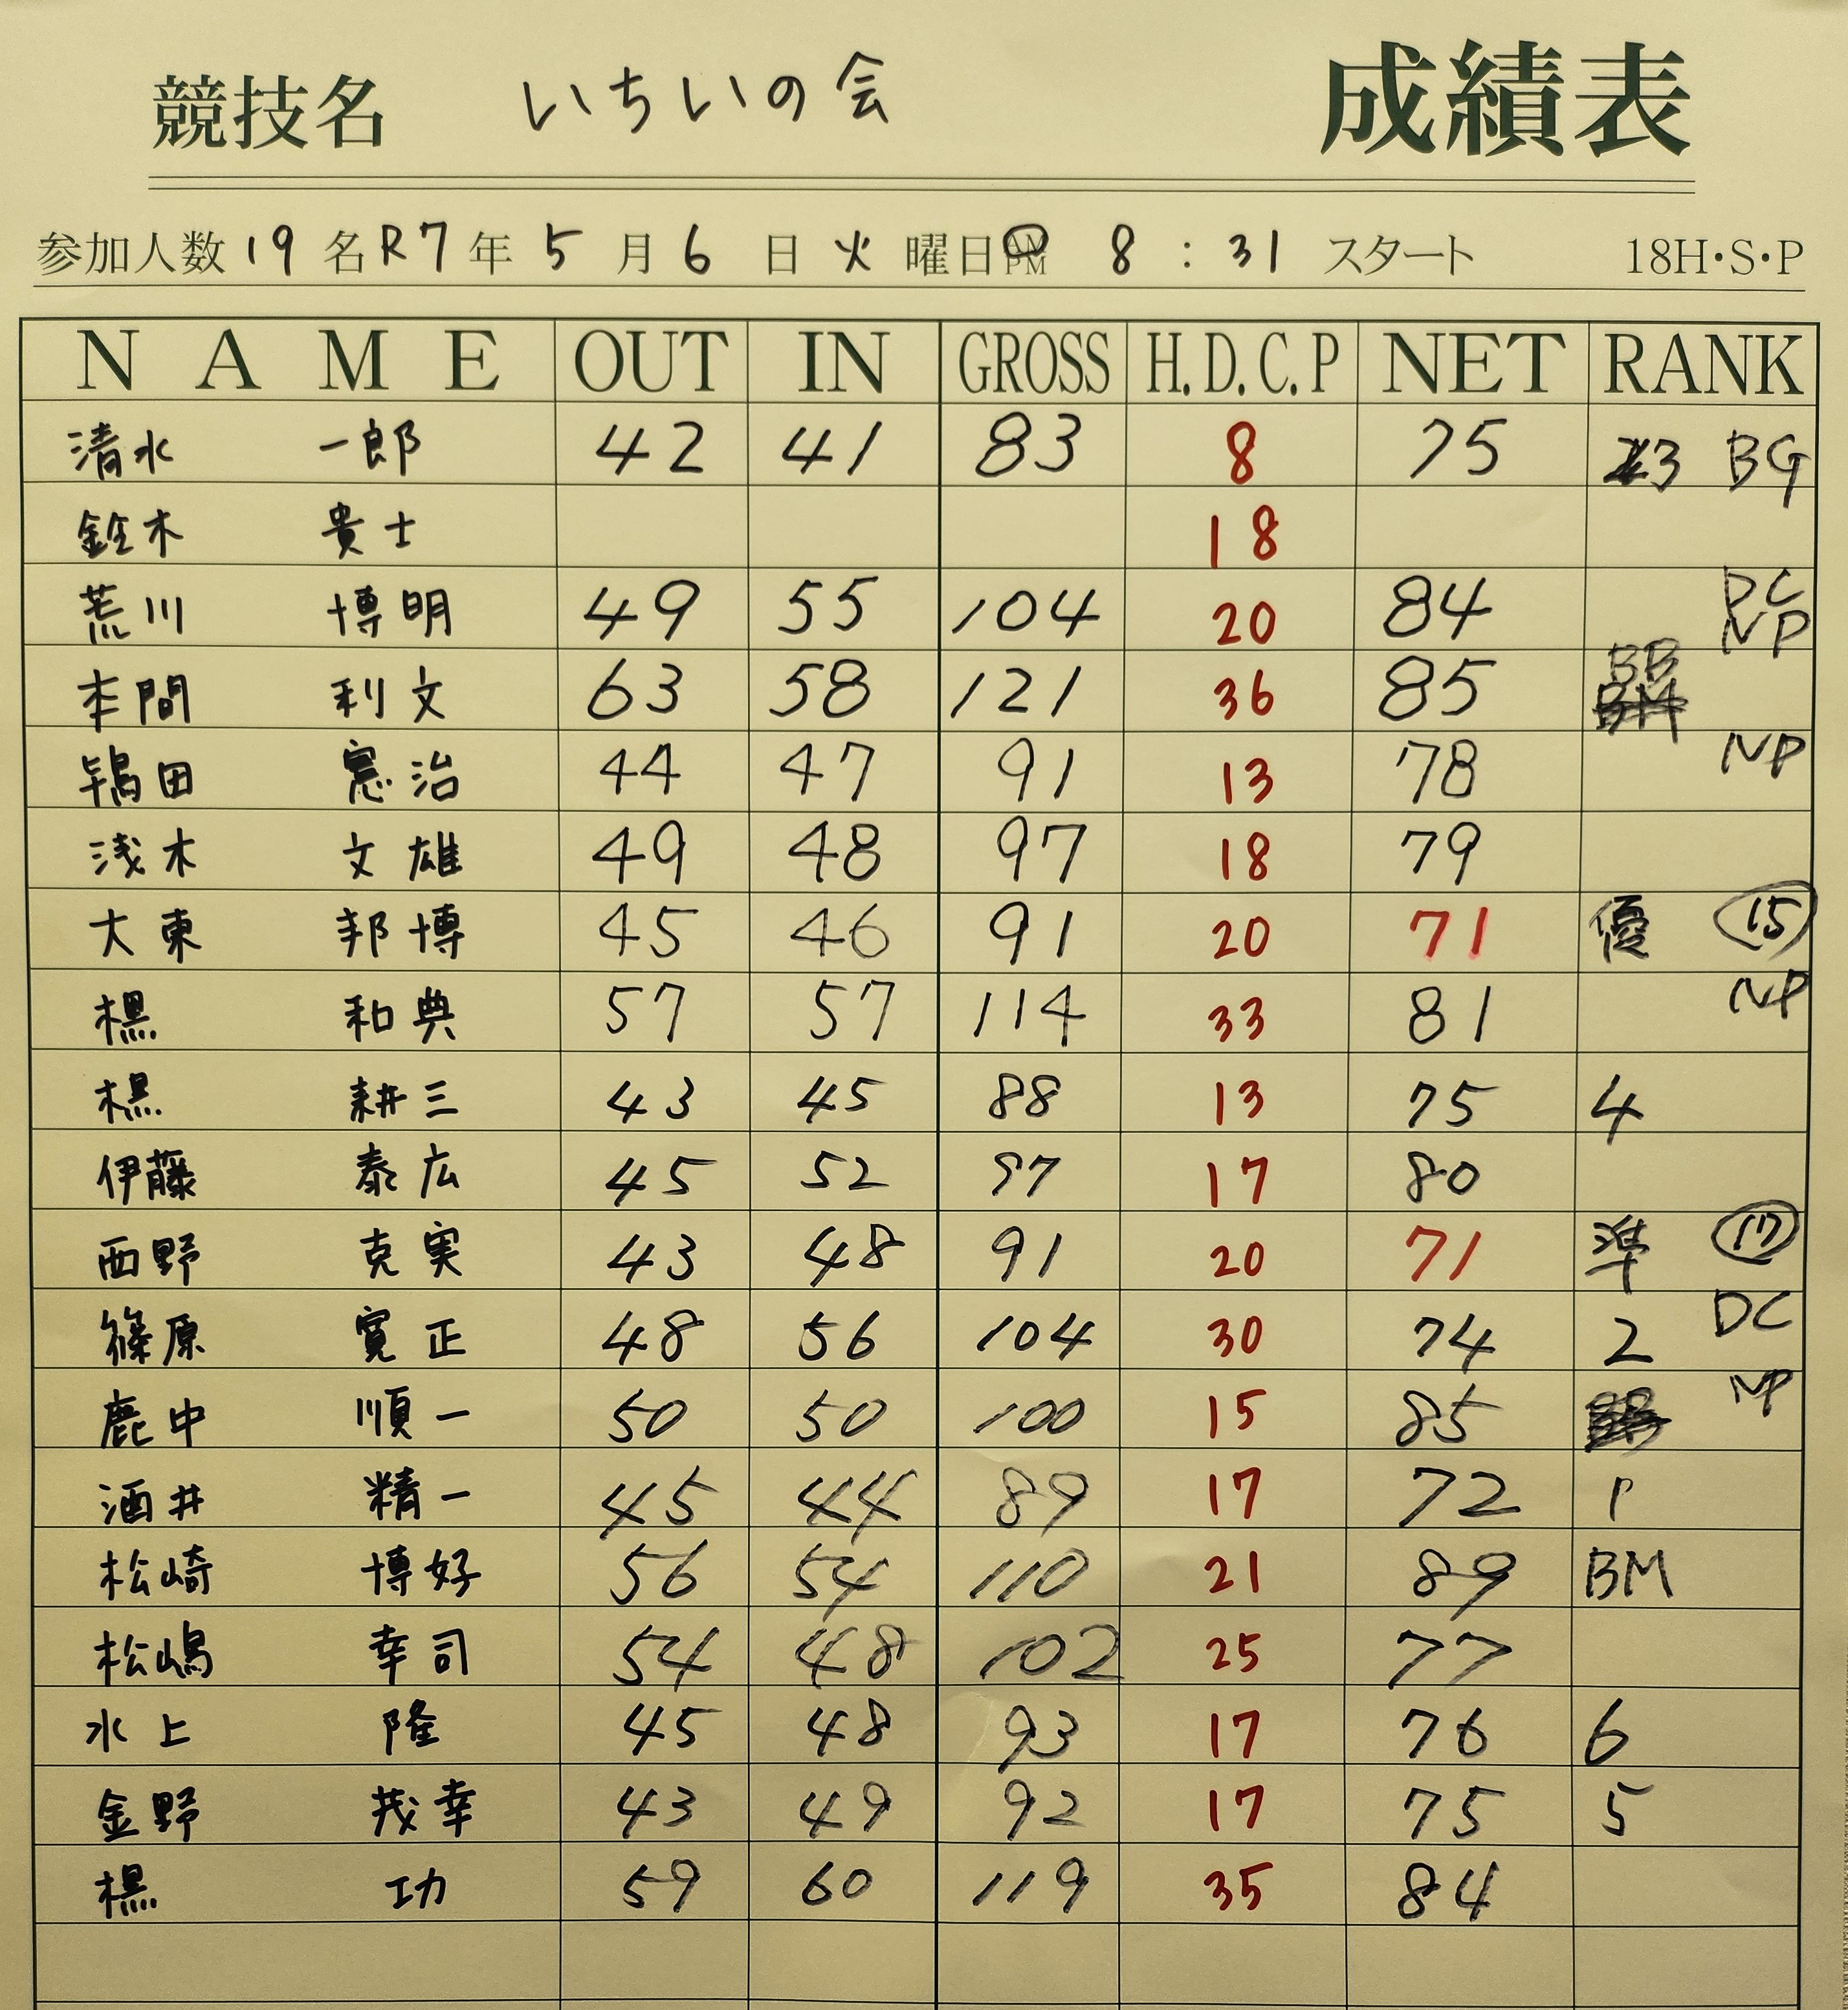 競技名 いちいの会 成績表
参加人数 19 名 R7 年 5 月 6 日 火 曜日 AM PM 8 : 31 スタート 18H・S・P
NAME OUT IN GROSS H.D.C.P NET RANK
清水 一郎 42 41 83 8 75 3 BG
鈴木 貴士 18
荒川 博明 49 55 104 20 84 DC NP
本間 利文 63 58 121 36 85 BB BM
鴇田 憲治 44 47 91 13 78 NP
浅木 文雄 49 48 97 18 79
大東 邦博 45 46 91 20 71 優 15
榥 和典 57 57 114 33 81 NP
榥 耕三 43 45 88 13 75 4
伊藤 泰広 45 52 97 17 80
西野 克実 43 48 91 20 71 準 17
篠原 寛正 48 56 104 30 74 2 DC
鹿中 順一 50 50 100 15 85 NP
酒井 精一 45 44 89 17 72 1
松崎 博好 56 54 110 21 89 BM
松嶋 幸司 54 48 102 25 77
水上 隆 45 48 93 17 76 6
金野 茂幸 43 49 92 17 75 5
榥 功 59 60 119 35 84